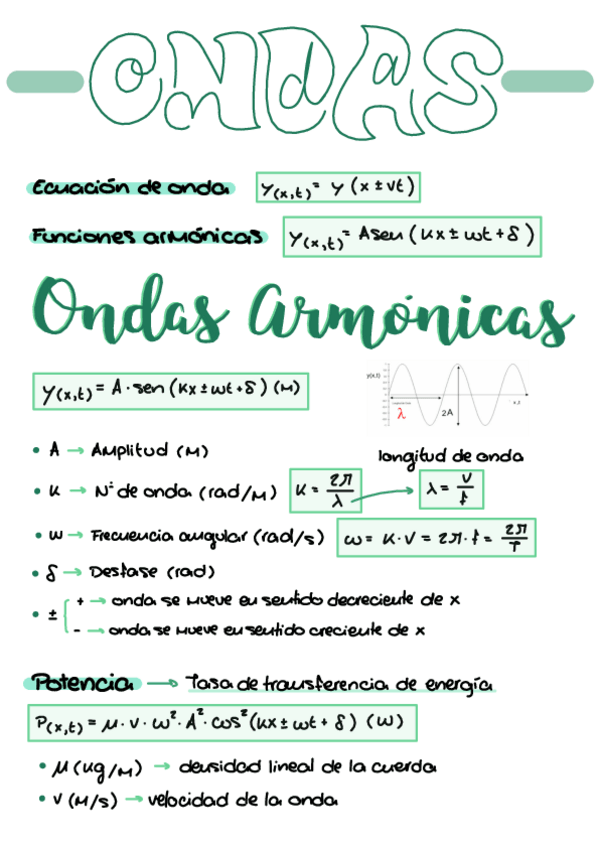 ONDAS
Ecuación de onda y(x,t) = y (x ± vt)
Funciones armónicas y(x,t) = A sen (kx ± ωt + δ)
Ondas Armónicas
y(x,t) = A · sen (kx ± ωt + δ) (m)
y(x,t)
λ
2A
longitud de onda
• A → Amplitud (m)
• k → Nº de onda (rad/m) k = 2π/λ → λ = v/f
• ω → Frecuencia angular (rad/s) ω = k · v = 2π · f = 2π/T
• δ → Desfase (rad)
• ± + → onda se mueve en sentido decreciente de x
- → onda se mueve en sentido creciente de x
Potencia → Tasa de transferencia de energía
P(x,t) = μ · v · ω² · A² · cos² (kx ± ωt + δ) (W)
• μ (kg/m) → densidad lineal de la cuerda
• v (m/s) → velocidad de la onda